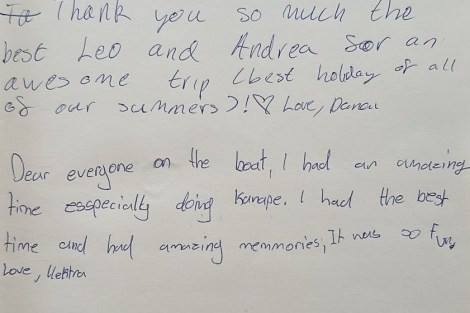 Thank you so much the
best Leo and Andrea for an
awesome trip (best holiday of all
of our summers)!♡ Love, Danai
Dear everyone on the boat, I had an amazing
time esspecially doing kanape. I had the best
time and had amazing memmories, It was so fun
Love,